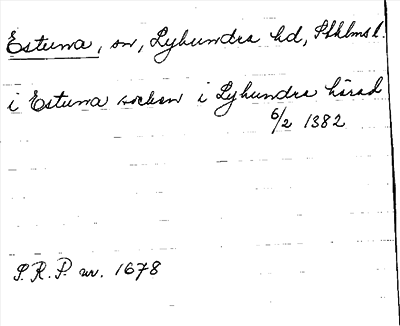 Estuna, sn, Lyhundra hd, Sthlms l.
i Estuna socken i Lyhundra härad
6/2 1382
S.R.P. nr. 1678